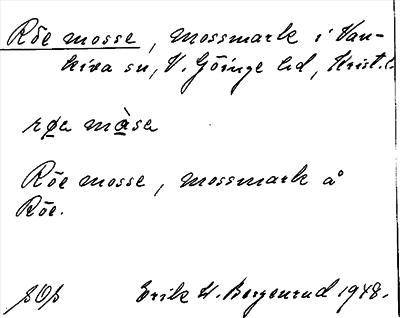 Röe mosse, mossmark i Van-
kiva sn, V. Göinge hd, Krist. l.
røa måsa
Röe mosse, mossmark å
Röe.
Erik W. Borgenrud 1948.